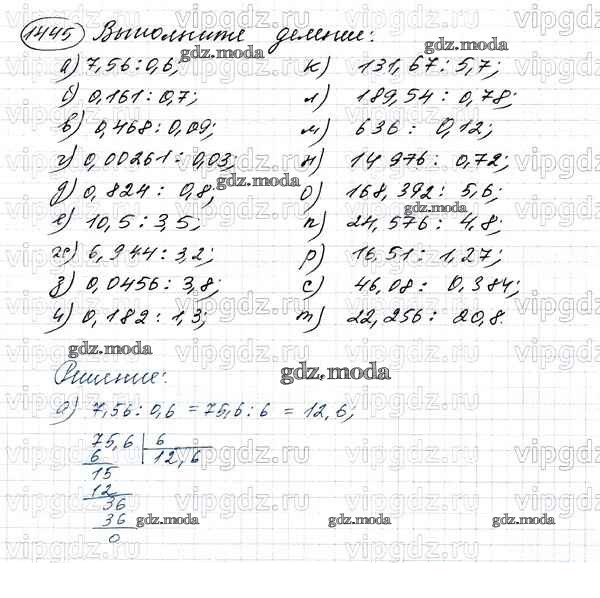 1445 Выполните деление:
а) 7,56 : 0,6; к) 131,67 : 5,7;
б) 0,161 : 0,7; л) 189,54 : 0,78;
в) 0,468 : 0,09; м) 636 : 0,12;
г) 0,00261 : 0,03; н) 14 976 : 0,72;
д) 0,824 : 0,8; о) 168,392 : 5,6;
е) 10,5 : 3,5; п) 24,576 : 4,8;
ж) 6,944 : 3,2; р) 16,51 : 1,27;
з) 0,0456 : 3,8; с) 46,08 : 0,384;
и) 0,182 : 1,3; т) 22,256 : 20,8
Решение:
а) 7,56 : 0,6 = 75,6 : 6 = 12,6;
75,6 6
6 12,6
15
12
36
36
0
gdz.moda
vipgdz.ru